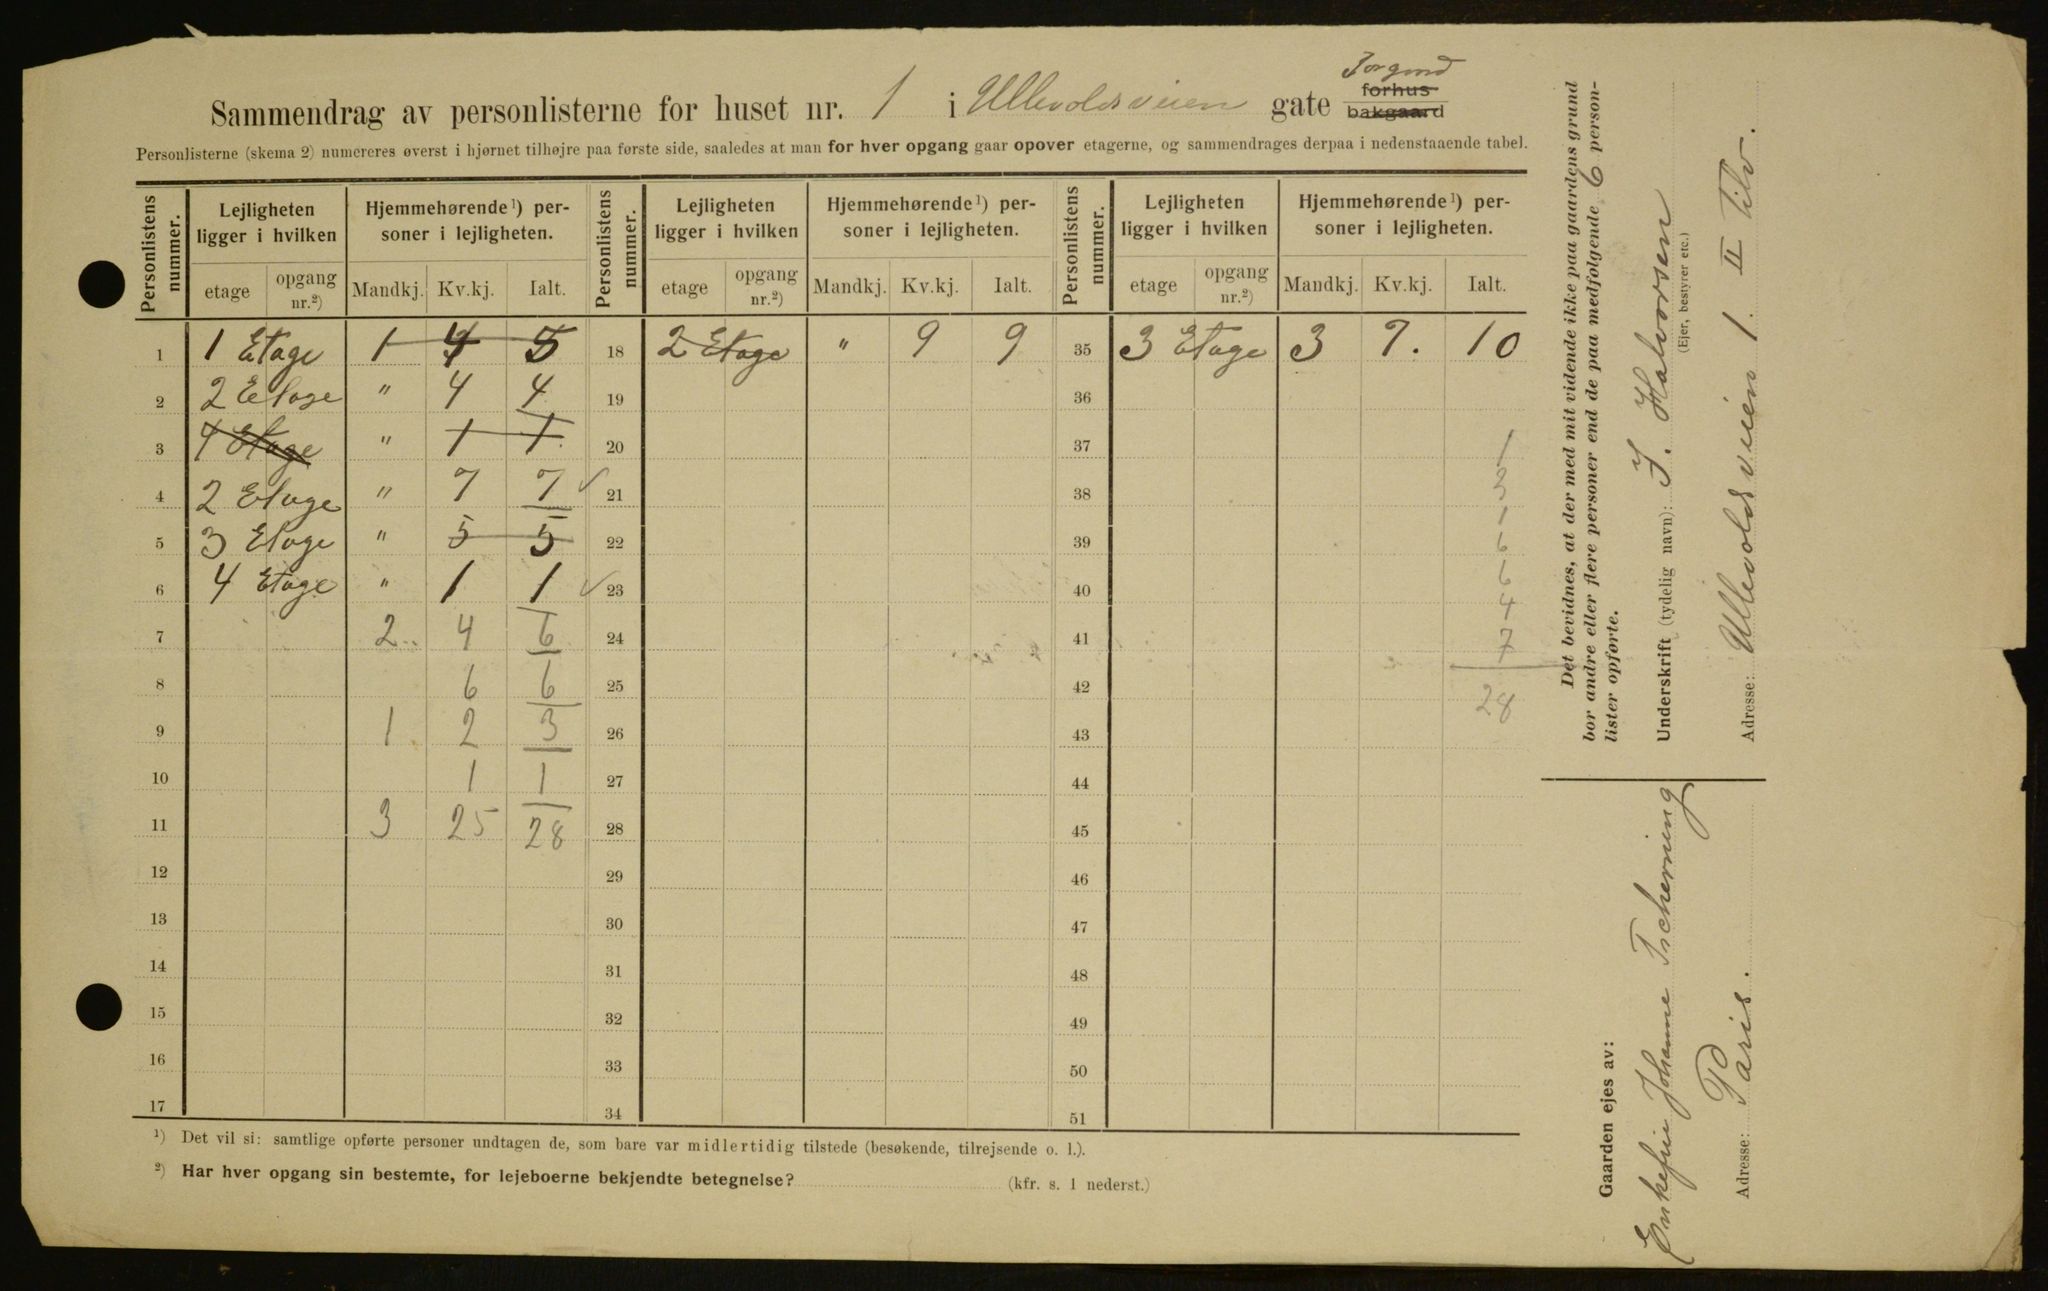 Sammendrag av personlisterne for huset nr. 1 i Ullevoldsveien gate forhus bakgaard
Personlisterne (skema 2) numereres øverst i hjørnet tilhøjre paa første side, saaledes at man for hver opgang gaar opover etagerne, og sammendrages derpaa i nedenstaaende tabel.
Personlistens nummer. Lejligheten ligger i hvilken Hjemmehørende 1) personer i lejligheten. Personlistens nummer. Lejligheten ligger i hvilken Hjemmehørende 1) personer i lejligheten. Personlistens nummer. Lejligheten ligger i hvilken Hjemmehørende 1) personer i lejligheten.
etage opgang nr.2) Mandkj. Kv.kj. Ialt. etage opgang nr.2) Mandkj. Kv.kj. Ialt. etage opgang nr.2) Mandkj. Kv.kj. Ialt.
1 1 Etage 1 4 5 18 2 Etage " 9 9 35 3 Etage 3 7. 10
2 2 Etage " 4 4 19 36
3 4 Etage " 1 1 20 37 1
4 2 Etage " 7 7 ✓ 21 38 3
5 3 Etage " 5 5 22 39 1 6
6 4 Etage " 1 1 ✓ 23 40 6 4
7 2 4 6 24 41 7
8 6 6 25 42 28
9 1 2 3 26 43
10 1 1 27 44
11 3 25 28 28 45
12 29 46
13 30 47
14 31 48
15 32 49
16 33 50
17 34 51
1) Det vil si: samtlige opførte personer undtagen de, som bare var midlertidig tilstede (besøkende, tilrejsende o. l.).
2) Har hver opgang sin bestemte, for lejeboerne bekjendte betegnelse? (kfr. s. 1 nederst.)
Det bevidnes, at der med mit vidende ikke paa gaardens grund
bor andre eller flere personer end de paa medfølgende 6 person-
lister opførte.
Underskrift (tydelig navn): J. Halvorsen
(Ejer, bestyrer etc.)
Adresse: Ullevoldsveien 1. II Tilv.
Gaarden ejes av:
Enkefru Johanne Tscherning
Adresse: Paris.